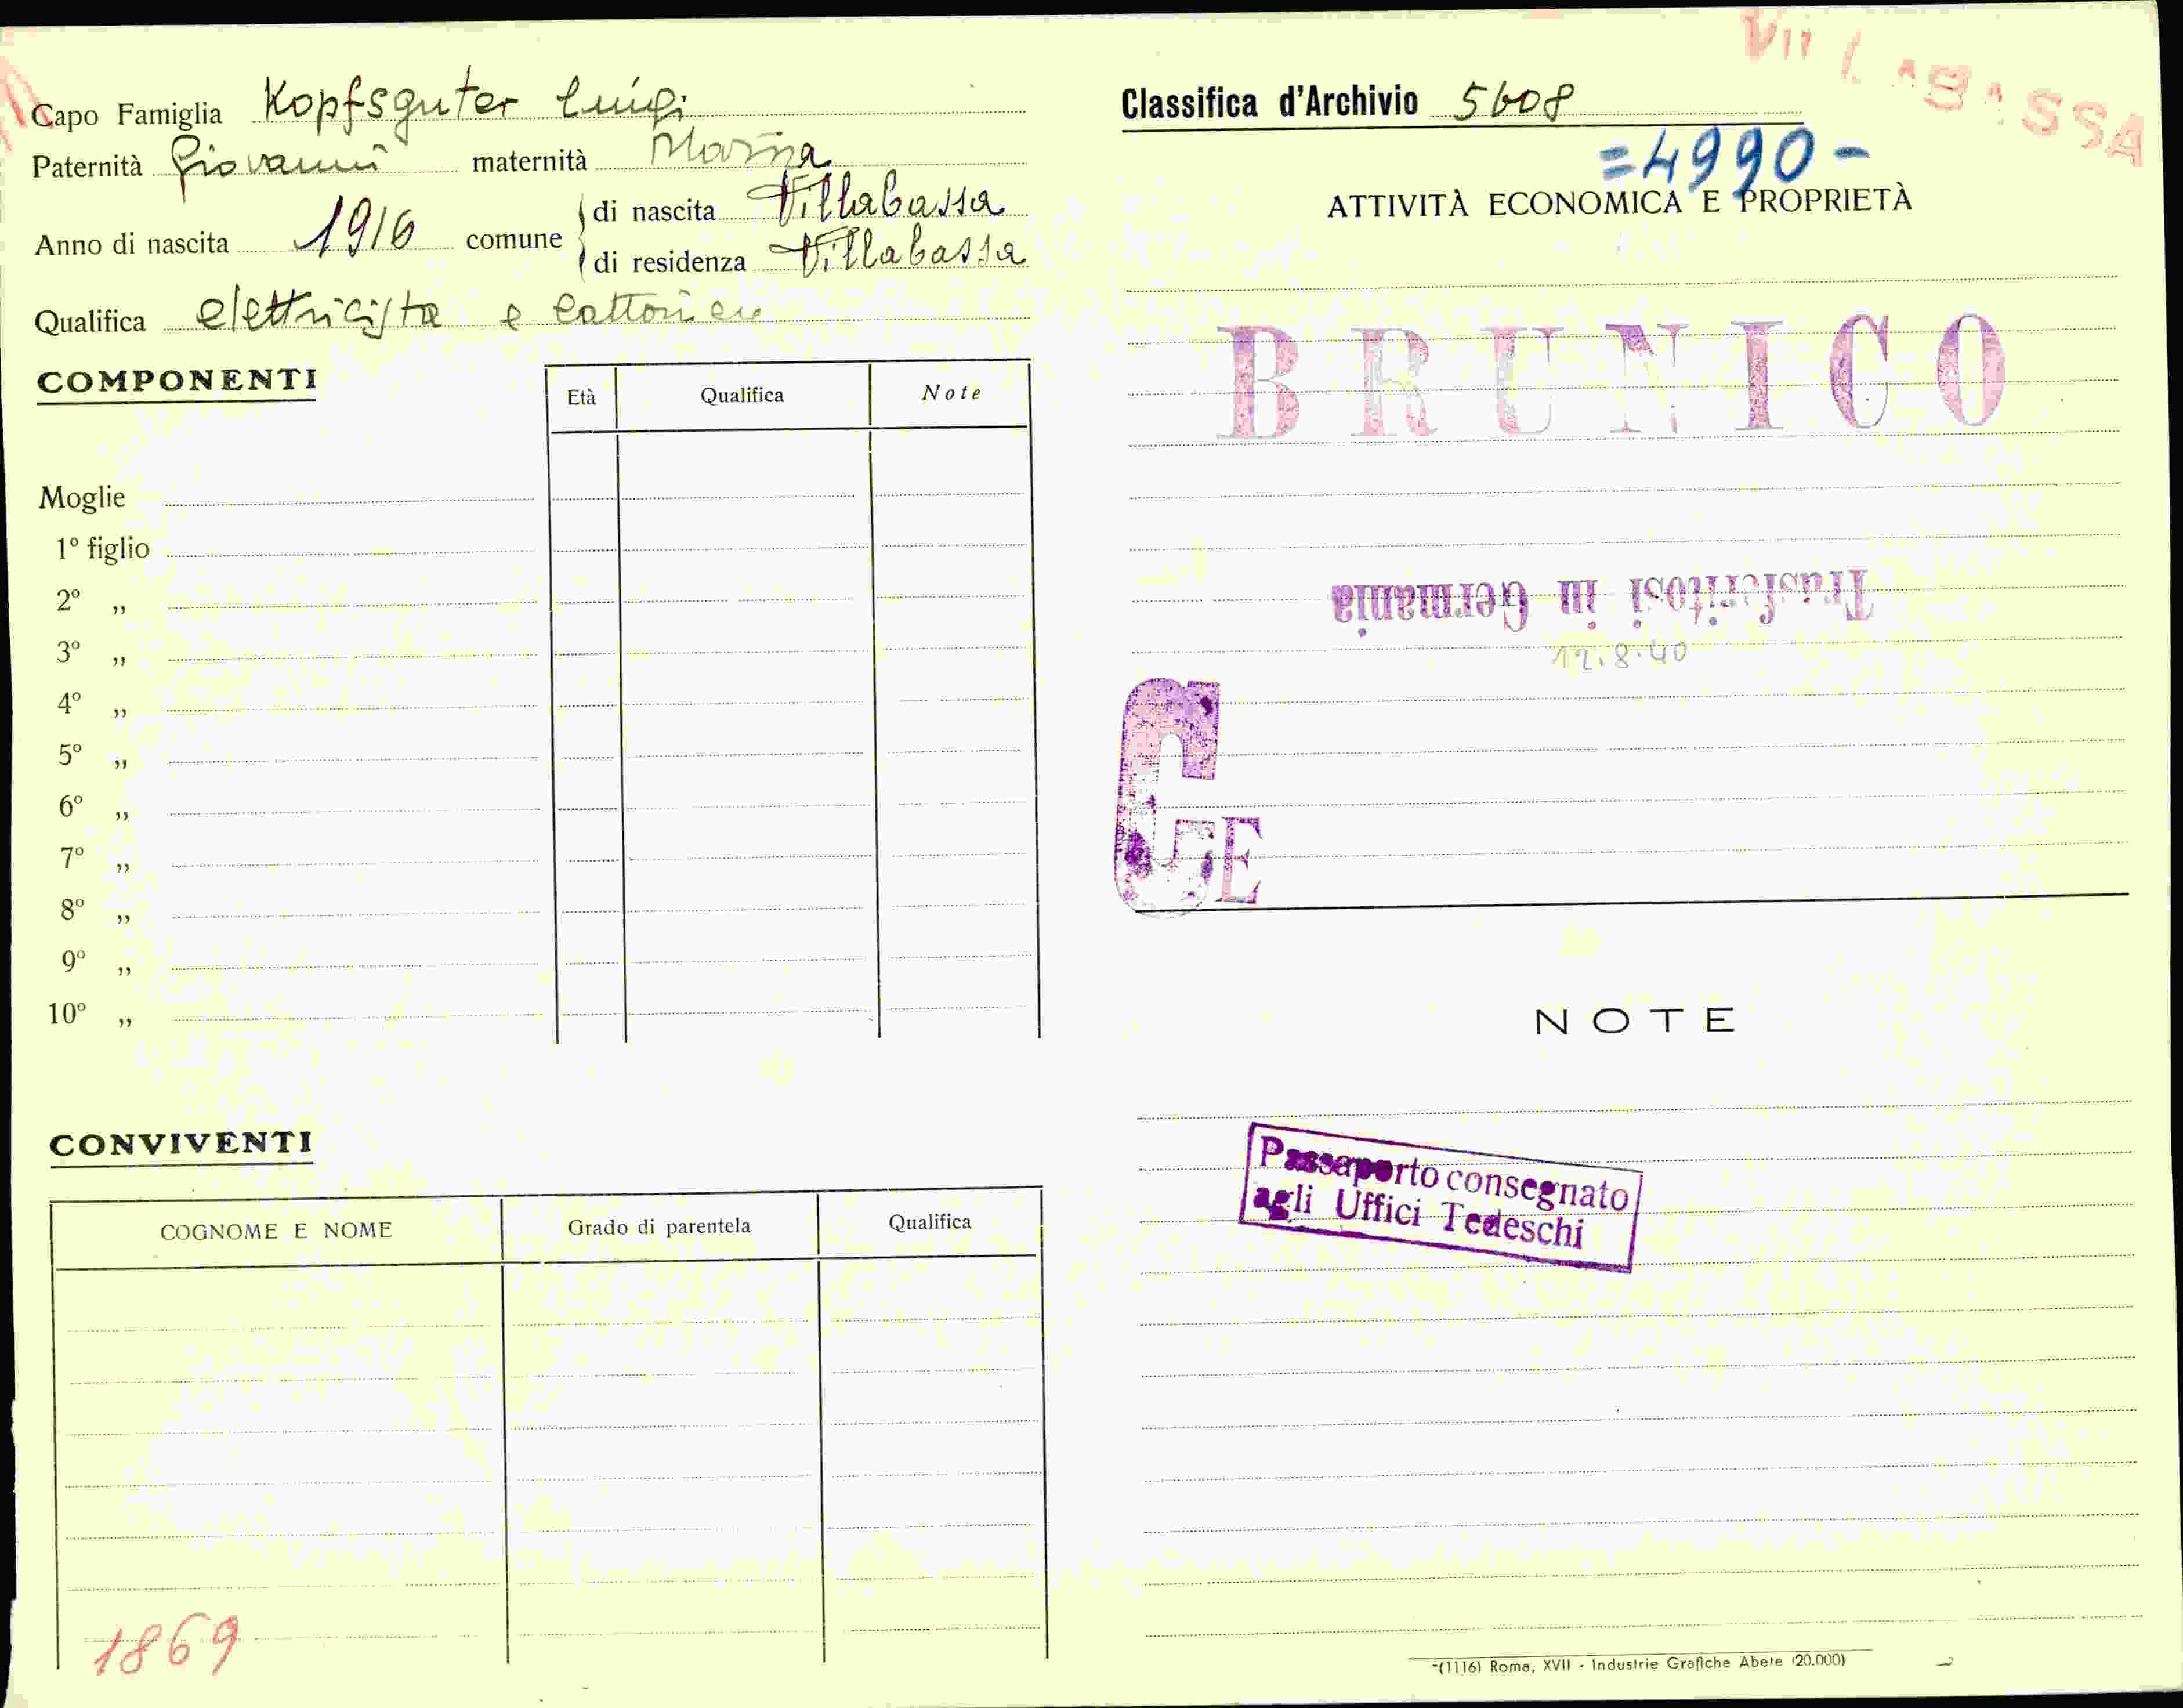 VILLABASSA
Capo Famiglia Kopfsguter Luigi
Paternità Giovanni maternità Maria
Anno di nascita 1916 comune di nascita Villabassa
di residenza Villabassa
Qualifica elettricista e
COMPONENTI
Età Qualifica Note
Moglie
1º figlio
2º ,,
3º ,,
4º ,,
5º ,,
6º ,,
7º ,,
8º ,,
9º ,,
10º ,,
CONVIVENTI
COGNOME E NOME Grado di parentela Qualifica
1869
Classifica d'Archivio 5608
=4990-
ATTIVITÀ ECONOMICA E PROPRIETÀ
BRUNICO
Trasferitosi in Germania
12.8.40
GE
NOTE
Passaporto consegnato
agli Uffici Tedeschi
(1116) Roma, XVII - Industrie Grafiche Abete (20.000)